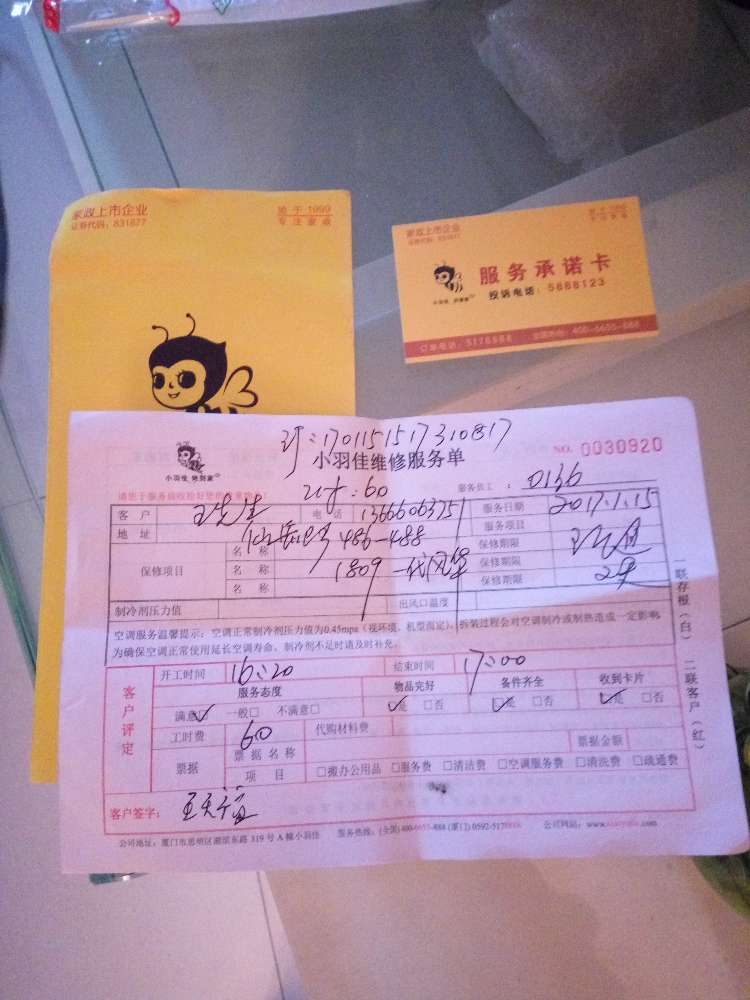 家政上市企业
证券代码：831877
始于1999
专注家政
家政上市企业
证券代码：831877
服务承诺卡
投诉电话：5688123
小羽佳
订单电话：5178888
全国热线：400-6655-888
单:1701151517310817
小羽佳维修服务单
NO. 0030920
小羽佳 到家
工时:60
服务员工： 0136
客户 王先生 电话 13666063751 服务日期 2017.1.15
地址 仙岳路486-488 服务项目
保修项目 名称 1809 一代风华 保修期限
名称 保修期限
名称 保修期限
制冷剂压力值 出风口温度
空调服务温馨提示：空调正常制冷剂压力值为0.45mpa（视环境、机型而定），拆装过程会对空调制冷或制热造成一定影响，
为确保空调正常使用延长空调寿命，制冷剂不足时请及时补充。
客户评定
开工时间 16:20 结束时间 17:00
服务态度 物品完好 备件齐全 收到卡片
满意☑ 一般□ 不满意□ ☑是 □否 ☑是 □否 ☑是 □否
工时费 60 代购材料费
票据 票据名称 票据金额
项目 □搬办公用品 □服务费 □清洁费 □空调服务费 □清洗费 □疏通费
客户签字：
公司地址：厦门市思明区湖滨东路319号A幢小羽佳 服务热线：(全国)400-6655-888 (厦门)0592-5178888 公司网站：
一联存根（白） 二联客户（红）